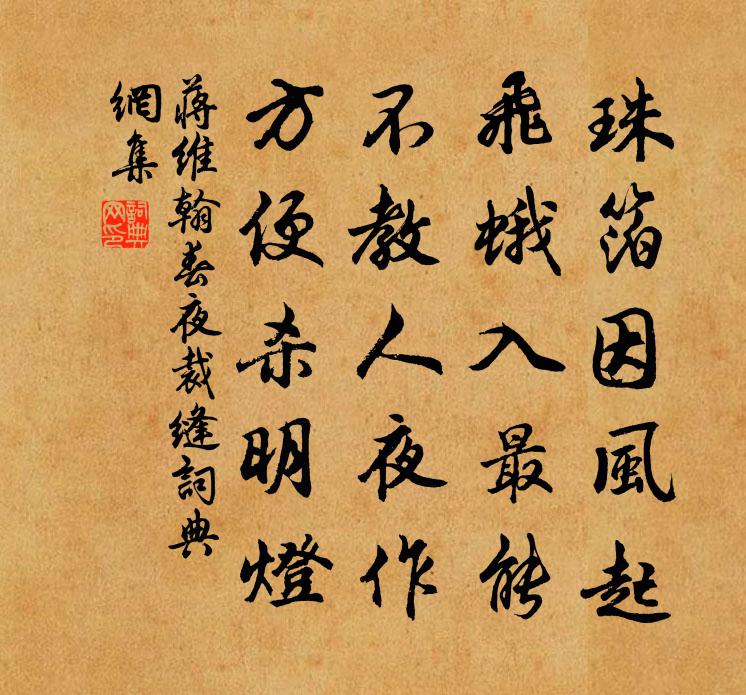 珠箔因風起
飛蛾入最能
不教人夜作
方便杀明燈
蔣維翰春夜裁縫詞典
網集
詞典
网印